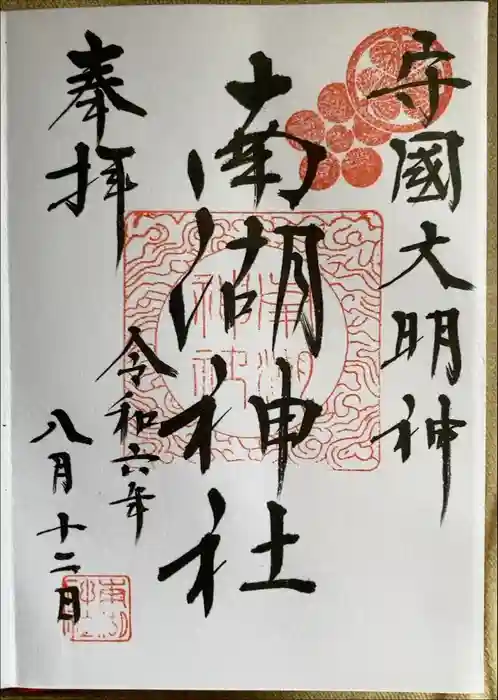 守國大明神
南湖神社
奉拝
令和六年
八月十二日
南湖
神社